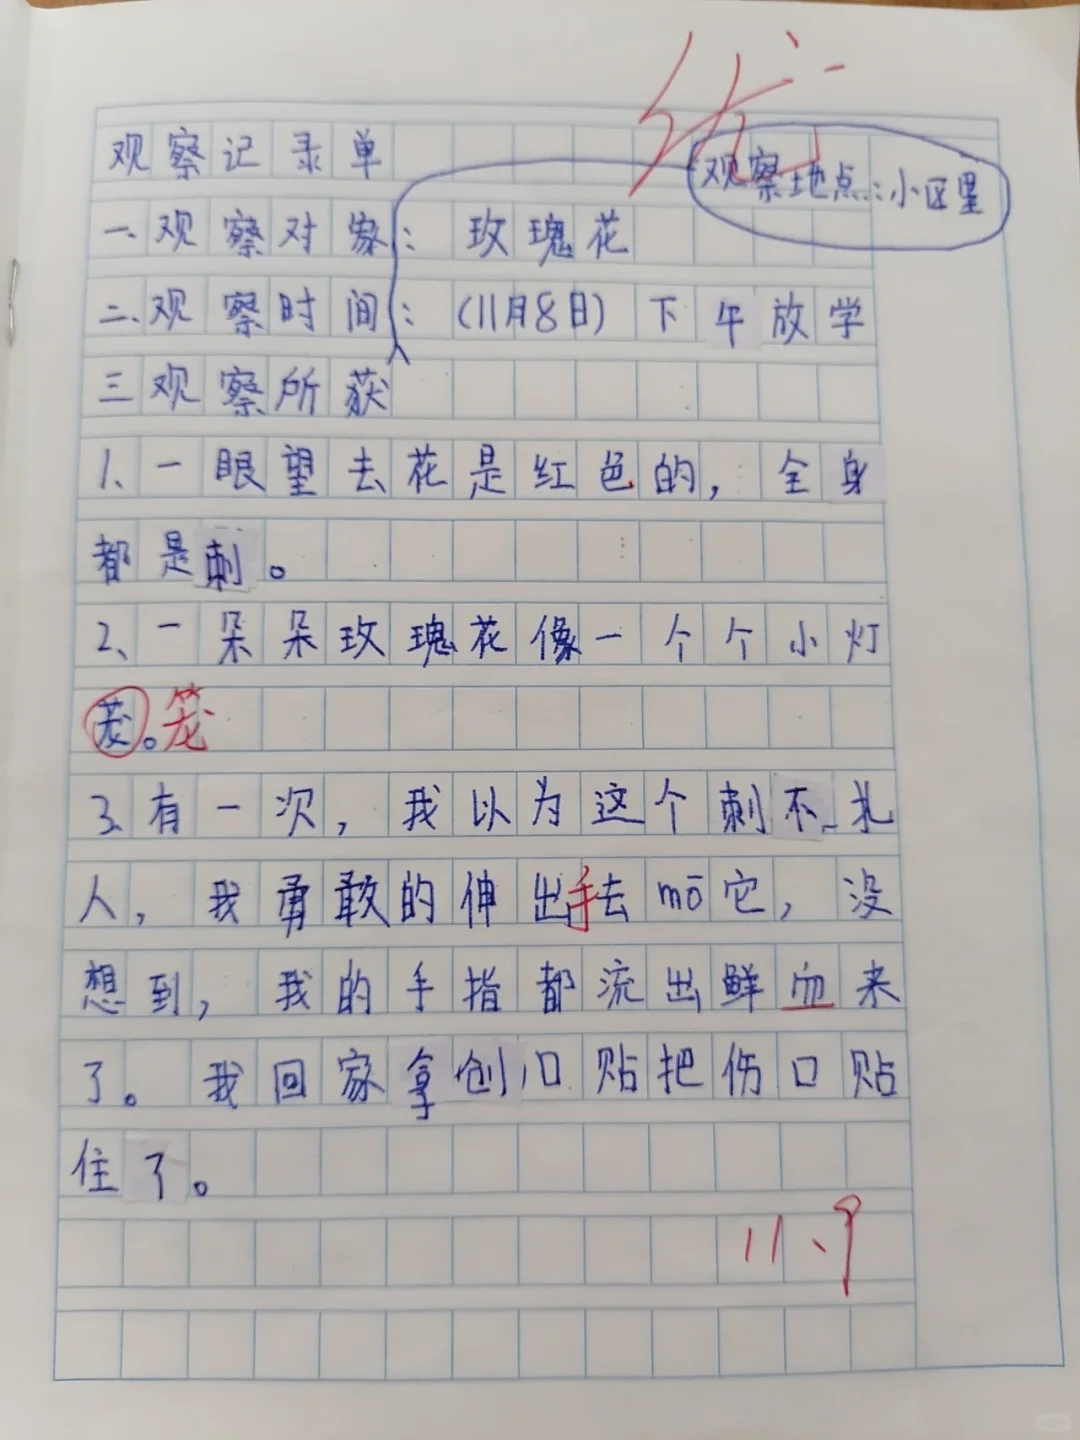 优
观察记录单
观察地点:小区里
一、观察对象:玫瑰花
二、观察时间:(11月8日)下午放学
三观察所获
1、一眼望去花是红色的,全身
都是刺。
2、一朵朵玫瑰花像一个个小灯
笼
3、有一次,我以为这个刺不扎
人,我勇敢的伸出手去mō它,没
想到,我的手指都流出鲜血来
了。我回家拿创口贴把伤口贴
住了。
11、9